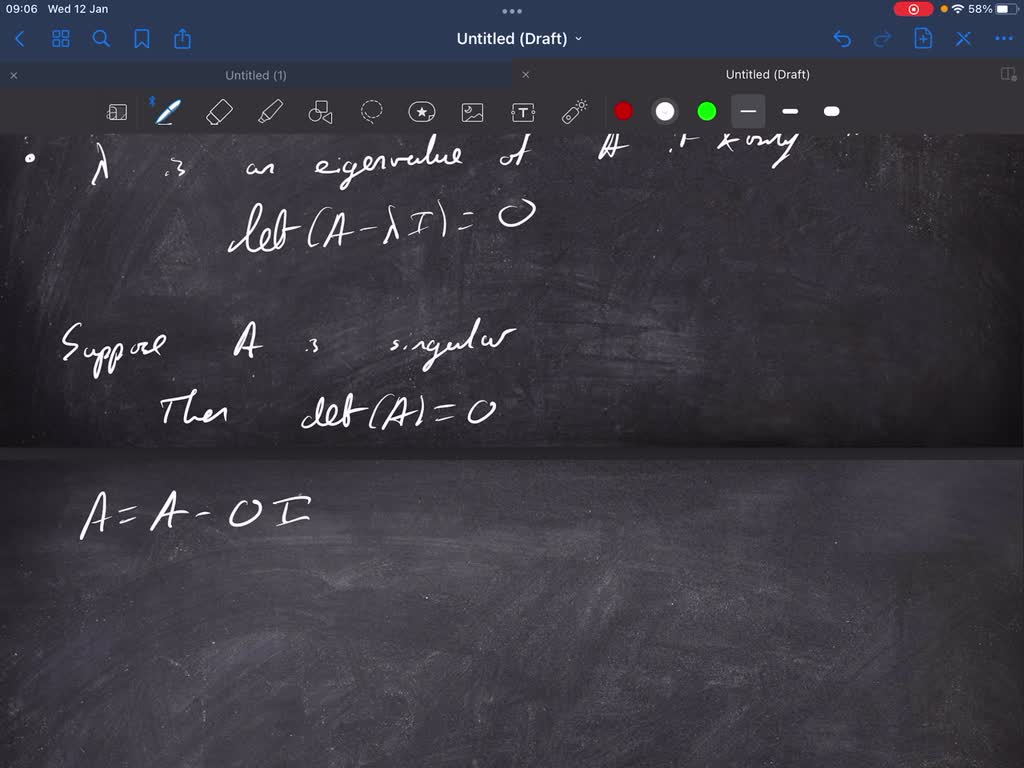 09:06 Wed 12 Jan 58%
Untitled (Draft)
Untitled (1) Untitled (Draft)
λ is an eigenvalue of A if & only
det(A-λI)=0
Suppose A is singular
Then det(A)=0
A=A-0I